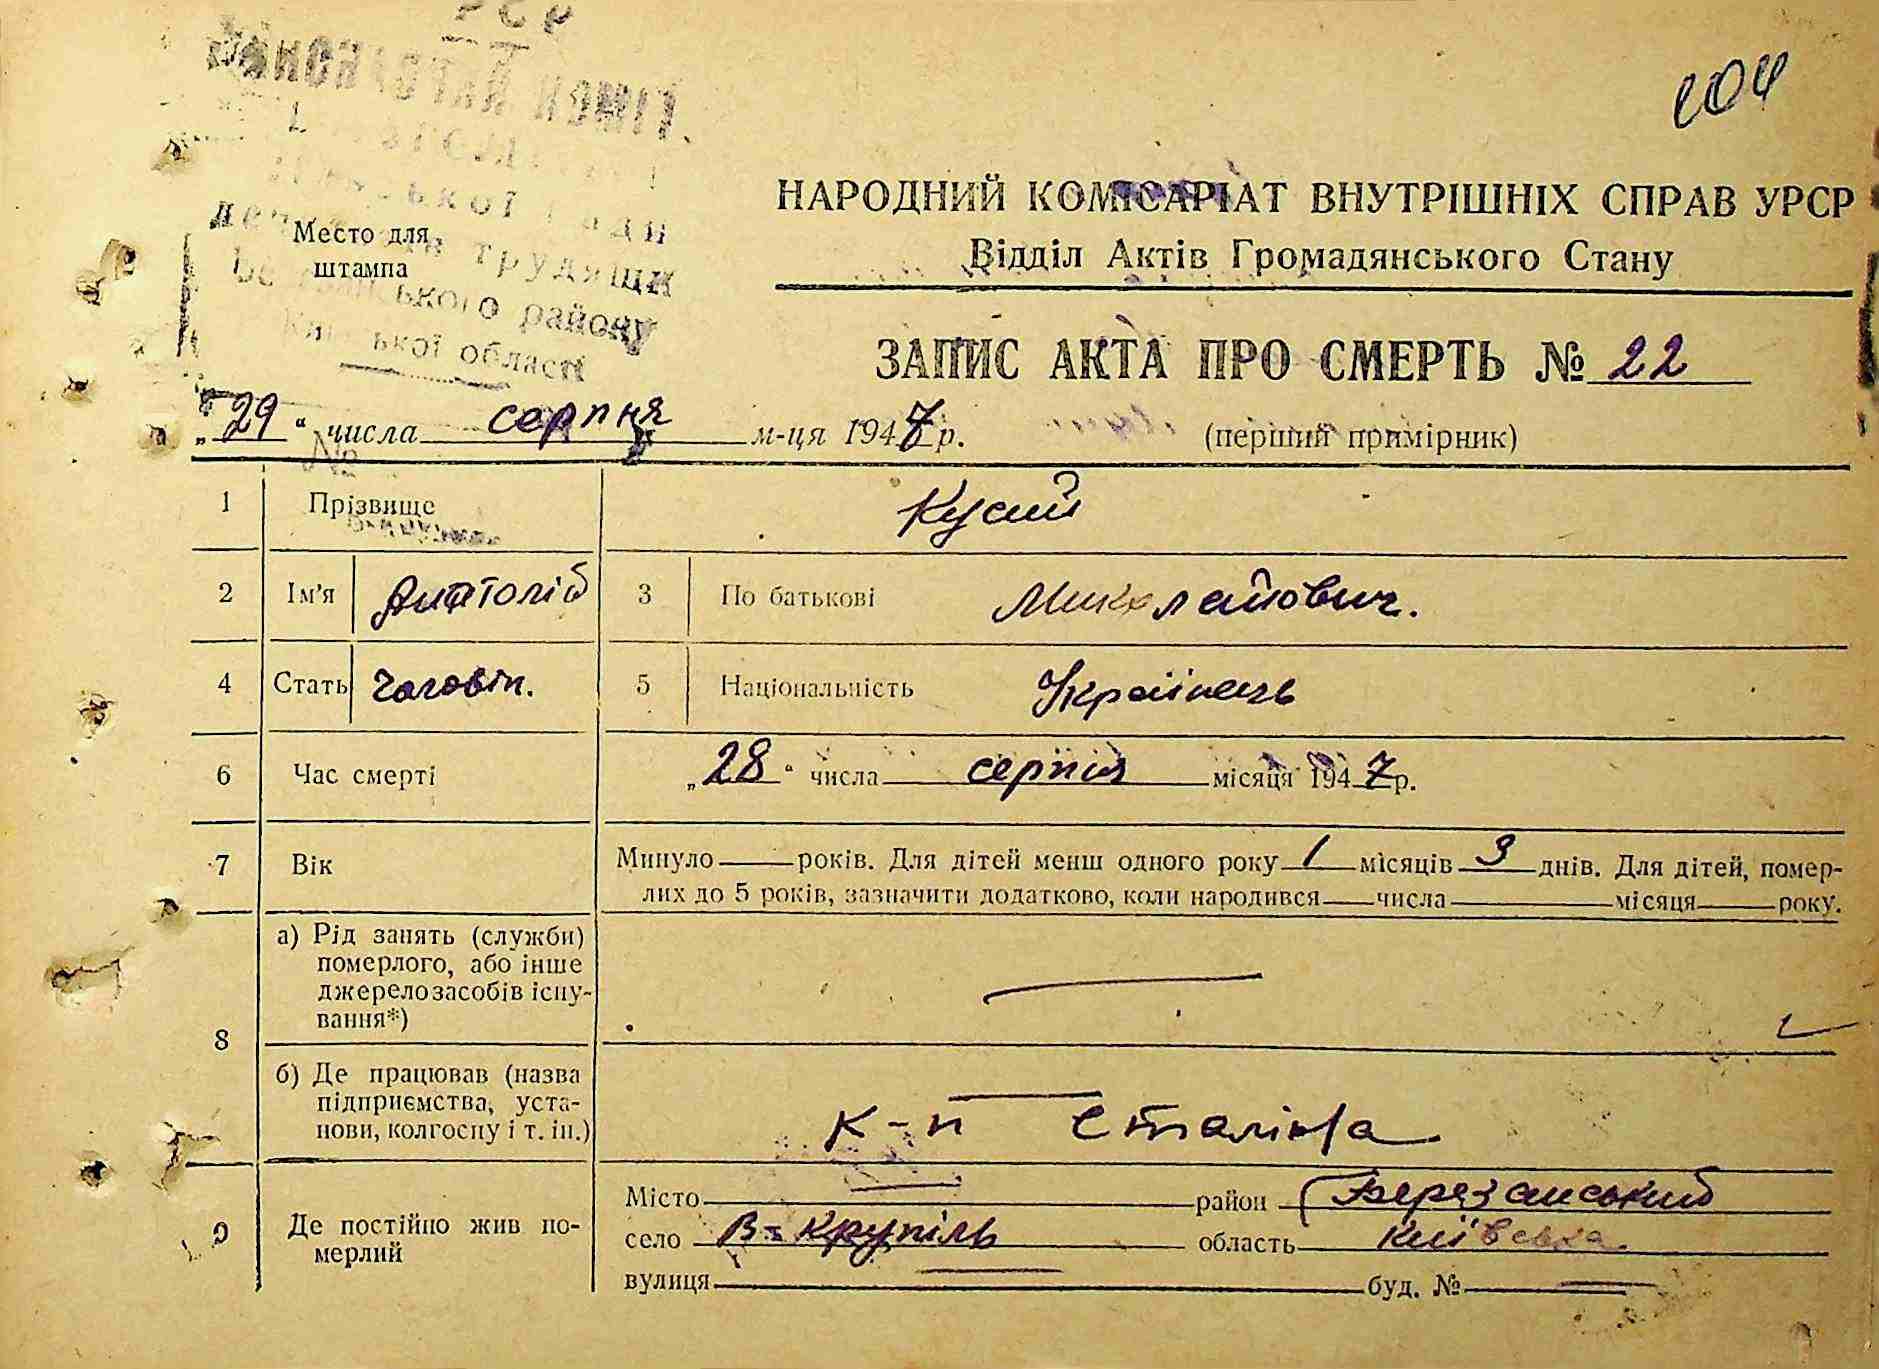 РСР
104
НАРОДНИЙ КОМІСАРІАТ ВНУТРІШНІХ СПРАВ УРСР
Відділ Актів Громадянського Стану
Место для
штампа
трудящи
району
області
ЗАПИС АКТА ПРО СМЕРТЬ № 22
„29“ числа серпня м-ця 1947 р.
(перший примірник)
№
1 Прізвище Кусий
2 Ім'я Анатолій 3 По батькові Миколайович.
4 Стать чоловіч. 5 Національність Українець
6 Час смерті „28“ числа серпня місяця 1947 р.
7 Вік Минуло років. Для дітей менш одного року 1 місяців 3 днів. Для дітей, помер-
лих до 5 років, зазначити додатково, коли народився числа місяця року.
8 а) Рід занять (служби)
померлого, або інше
джерело засобів існу-
вання*)
б) Де працював (назва
підприємства, уста-
нови, колгоспу і т. ін.)
к-п Сталіна
9 Де постійно жив по-
мерлий
Місто район Березанський
село В-Крупіль область Київська
вулиця буд. №